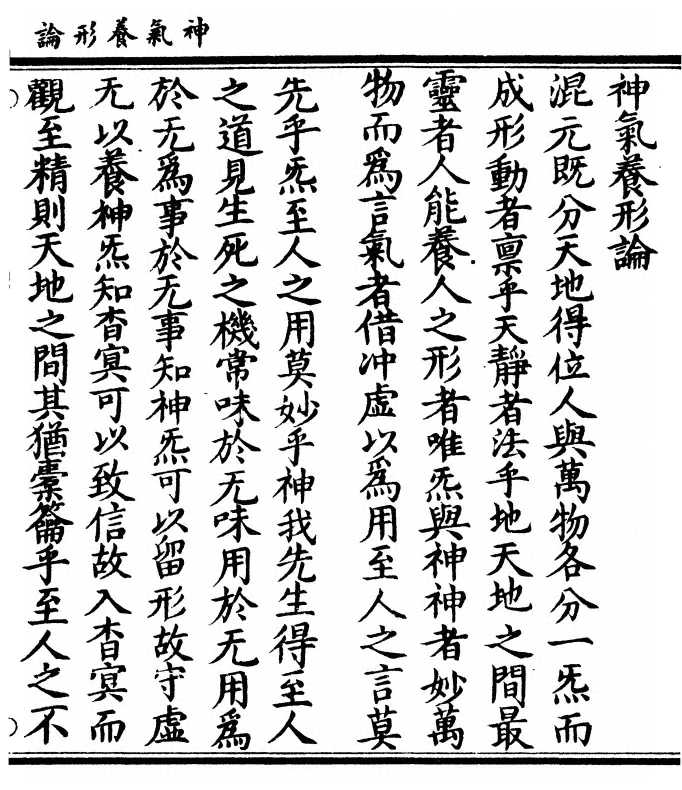 神氣養形論
神氣養形論
混元既分天地得位人與萬物各分一炁而
成形動者稟乎天靜者法乎地天地之間最
靈者人能養人之形者唯炁與神神者妙萬
物而爲言氣者借冲虛以爲用至人之言莫
先乎炁至人之用莫妙乎神我先生得至人
之道見生死之機常味於无味用於无用爲
於无爲事於无事知神炁可以留形故守虛
无以養神炁知杳冥可以致信故入杳冥而
觀至精則天地之間其猶橐籥乎至人之不